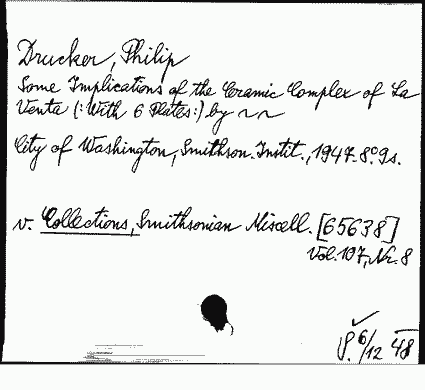 Drucker, Philip
Some Implications of the Ceramic Complex of La
Venta (: With 6 Plates :) by ~ ~
City of Washington, Smithson. Instit., 1947. 8° 9s.
v. Collections, Smithsonian Miscell. [65638]
Vol. 107, Nr. 8
6/12 48